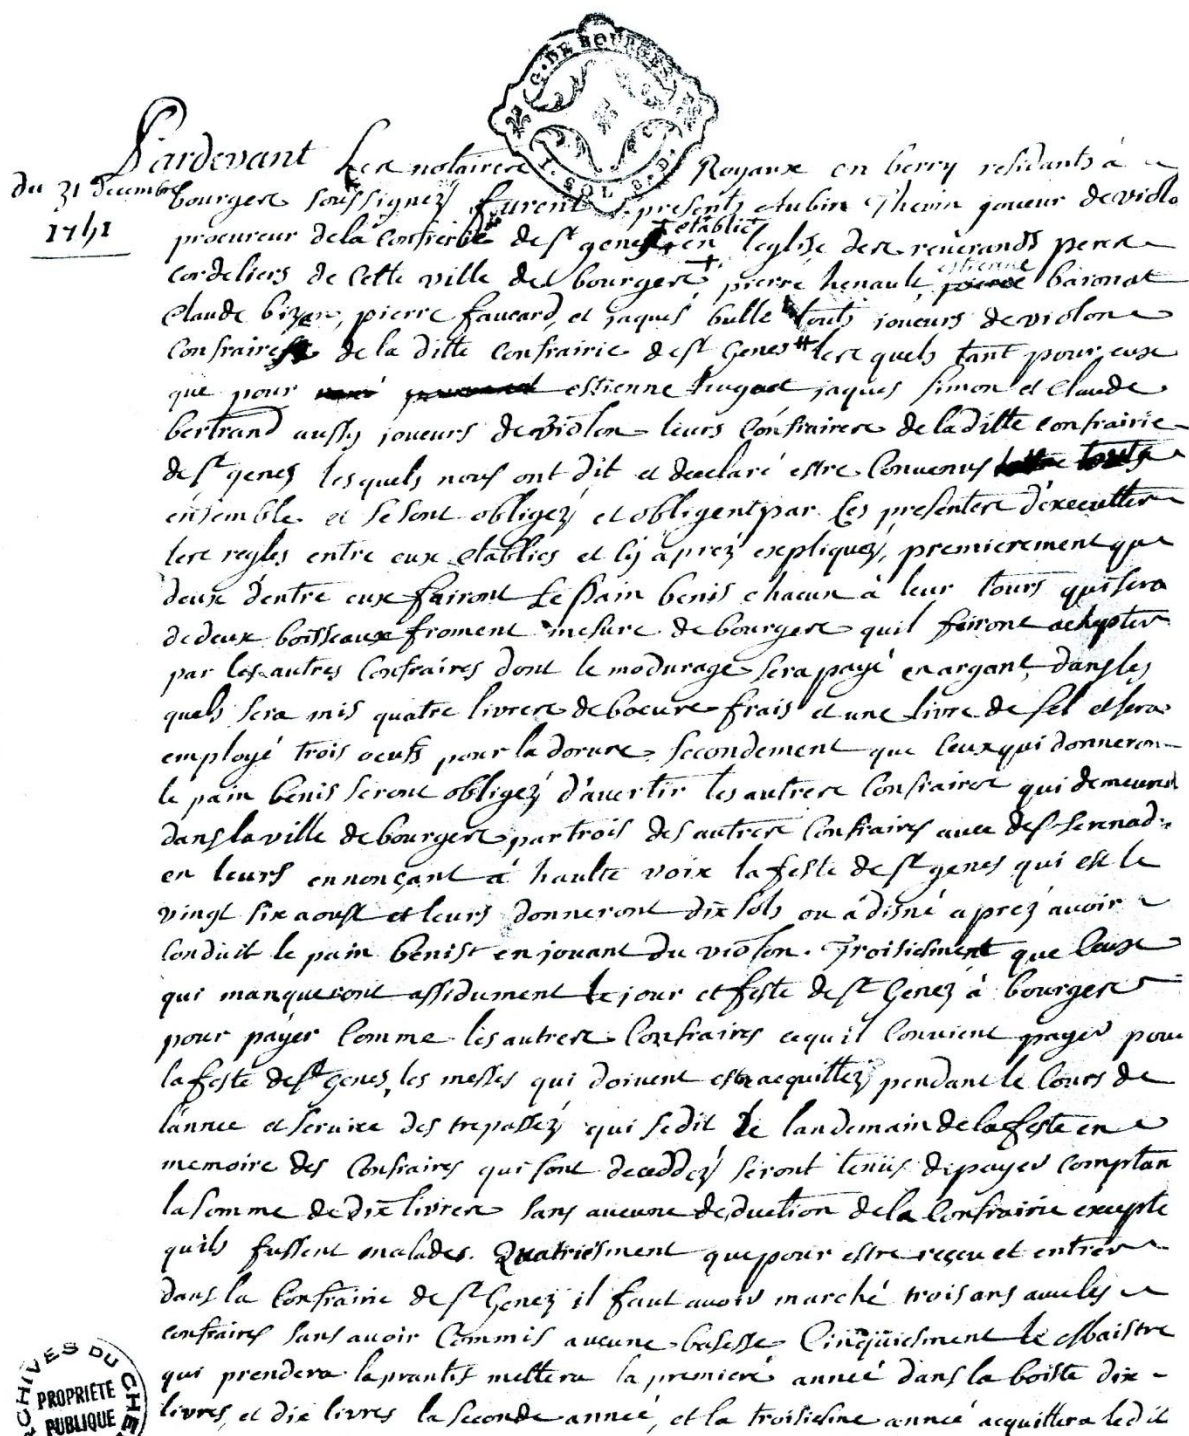 G. DE BOURGES
I. SOL. 8. D.
Pardevant Les notaires Royaux en berry residants à
du 31 decembre
1741
bourges soussignez furent presents Aubin Thevin joueur de violo
procureur de la Confrerie de st genes etablie en leglise des reverands peres
cordeliers de Cette ville de bourges pierre henault estienne baronat
Claude bizon, pierre faucard, et jaques bulle touts joueurs de violon
Confraires de la ditte Confrairie de st Genes les quels tant pour eux
que pour estienne huguet jaques simon et Claude
bertrand aussy joueurs de violon leurs Confraires de laditte confrairie
de st genez lesquels nous ont dit et declaré estre Convenus
ensemble et se sont obligez et obligent par Les presentes d'executter
les regles entre eux etablies et cy aprez expliquez, premierement que
deux d'entre eux fairont Le Pain benis chacun à leur tours qui sera
de deux boisseaux froment mesure de bourges quil fairont achepter
par les autres Confraires dont le modurage sera payé en argant, dans les
quels sera mis quatre livres de boeure frais et une livre de sel et sera
employé trois oeufs pour la dorure, secondement que Ceux qui donneron
le pain benis seront obligez d'avertir les autres Confraires qui demeurent
dans la ville de bourges par trois des autres Confraires avec des serenad.
en leurs ennonçant à haulte voix la feste de st genes qui est le
vingt six aoust et leurs donneront dix sols ou à disné aprez avoir
conduit le pain benist en jouant du violon. Troisiesment que Ceux
qui manqueront assidument le jour et feste de st Genez à bourges
pour payer Comme les autres Confraires cequil Convient payer pour
la feste de st Genes, les messes qui doivent estre acquittez pendant le Cours de
lannee et service des trepassez qui se dit le landemain de la feste en
memoire des Confraires qui sont deceddez seront tenüs de payer comptan
la somme de dix livres sans aucune deduction de la Confrairie excepté
quils fussent malades. Quatriesment que pour estre reçeu et entrer
dans la Confrairie de st Genez il faut avoir marché trois ans avec les
confraires sans avoir Commis aucune basesse Cinquiesment le Maistre
qui prendera laprantis mettera la premiere année dans la boiste dix
livres, et dix livres la seconde année, et la troisiesme année acquittera ledit
ARCHIVES DU CHER
PROPRIÉTÉ
PUBLIQUE